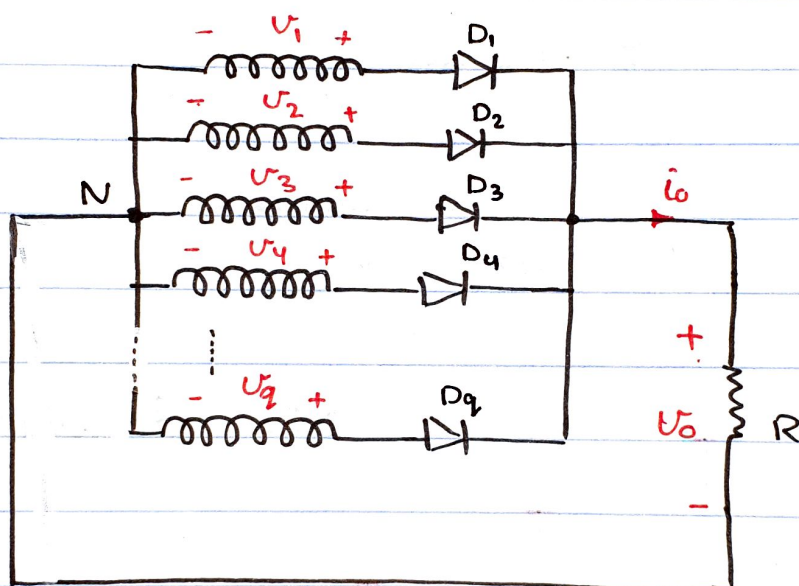 - v₁ + D₁
- v₂ + D₂
N - v₃ + D₃ i₀
- v₄ + D₄
+
- v_q + D_q v₀ R
-